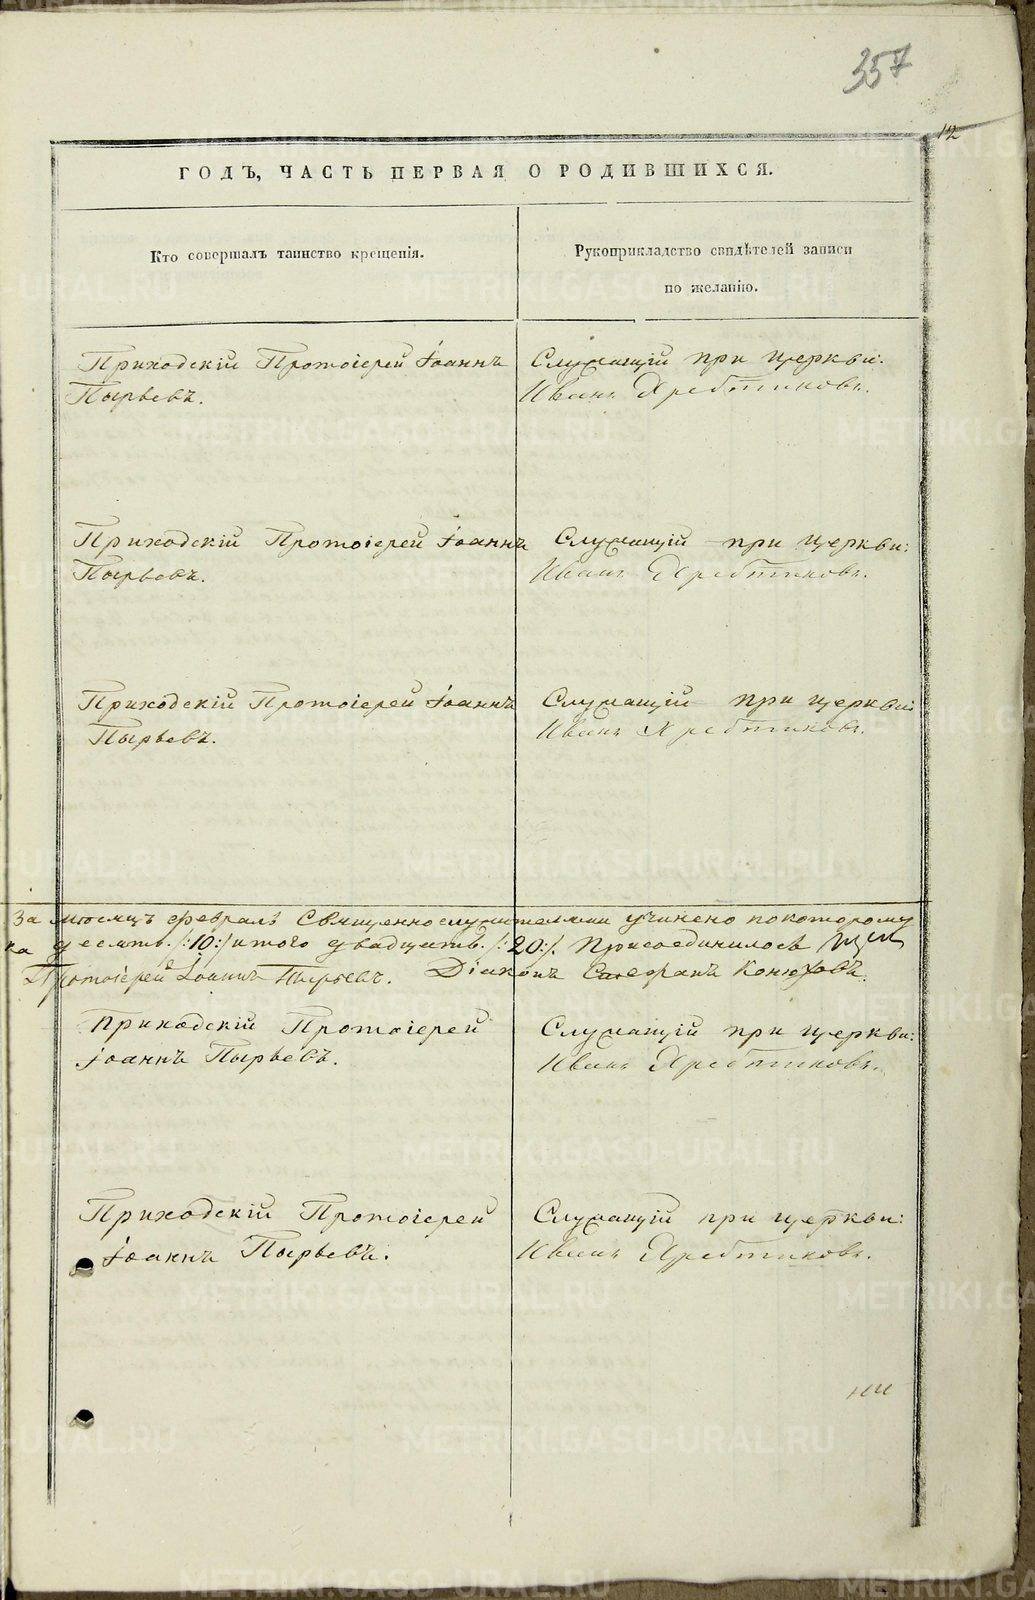 357
12
ГОДЪ, ЧАСТЬ ПЕРВАЯ О РОДИВШИХСЯ.
Кто совершалъ таинство крещенія.
Рукоприкладство свидѣтелей записи
по желанію.
Приходскій Протоіерей Іоаннъ
Пырьевъ.
Служащій при церкви:
Иванъ Хребтиковъ.
Приходскій Протоіерей Іоаннъ
Пырьевъ.
Служащій при церкви:
Иванъ Хребтиковъ.
Приходскій Протоіерей Іоаннъ
Пырьевъ.
Служащій при церкви:
Иванъ Хребтиковъ.
За мѣсяцъ февраль Священнослужителями учинено по которому
десять /:10:/ итого двадцать. /:20:/. Присоединилось
Протоіерей Іоаннъ Пырьевъ. Діаконъ Конюховъ.
Приходскій Протоіерей
Іоаннъ Пырьевъ.
Служащій при церкви:
Иванъ Хребтиковъ.
Приходскій Протоіерей
Іоаннъ Пырьевъ.
Служащій при церкви:
Иванъ Хребтиковъ.
METRIKI.GASO-URAL.RU